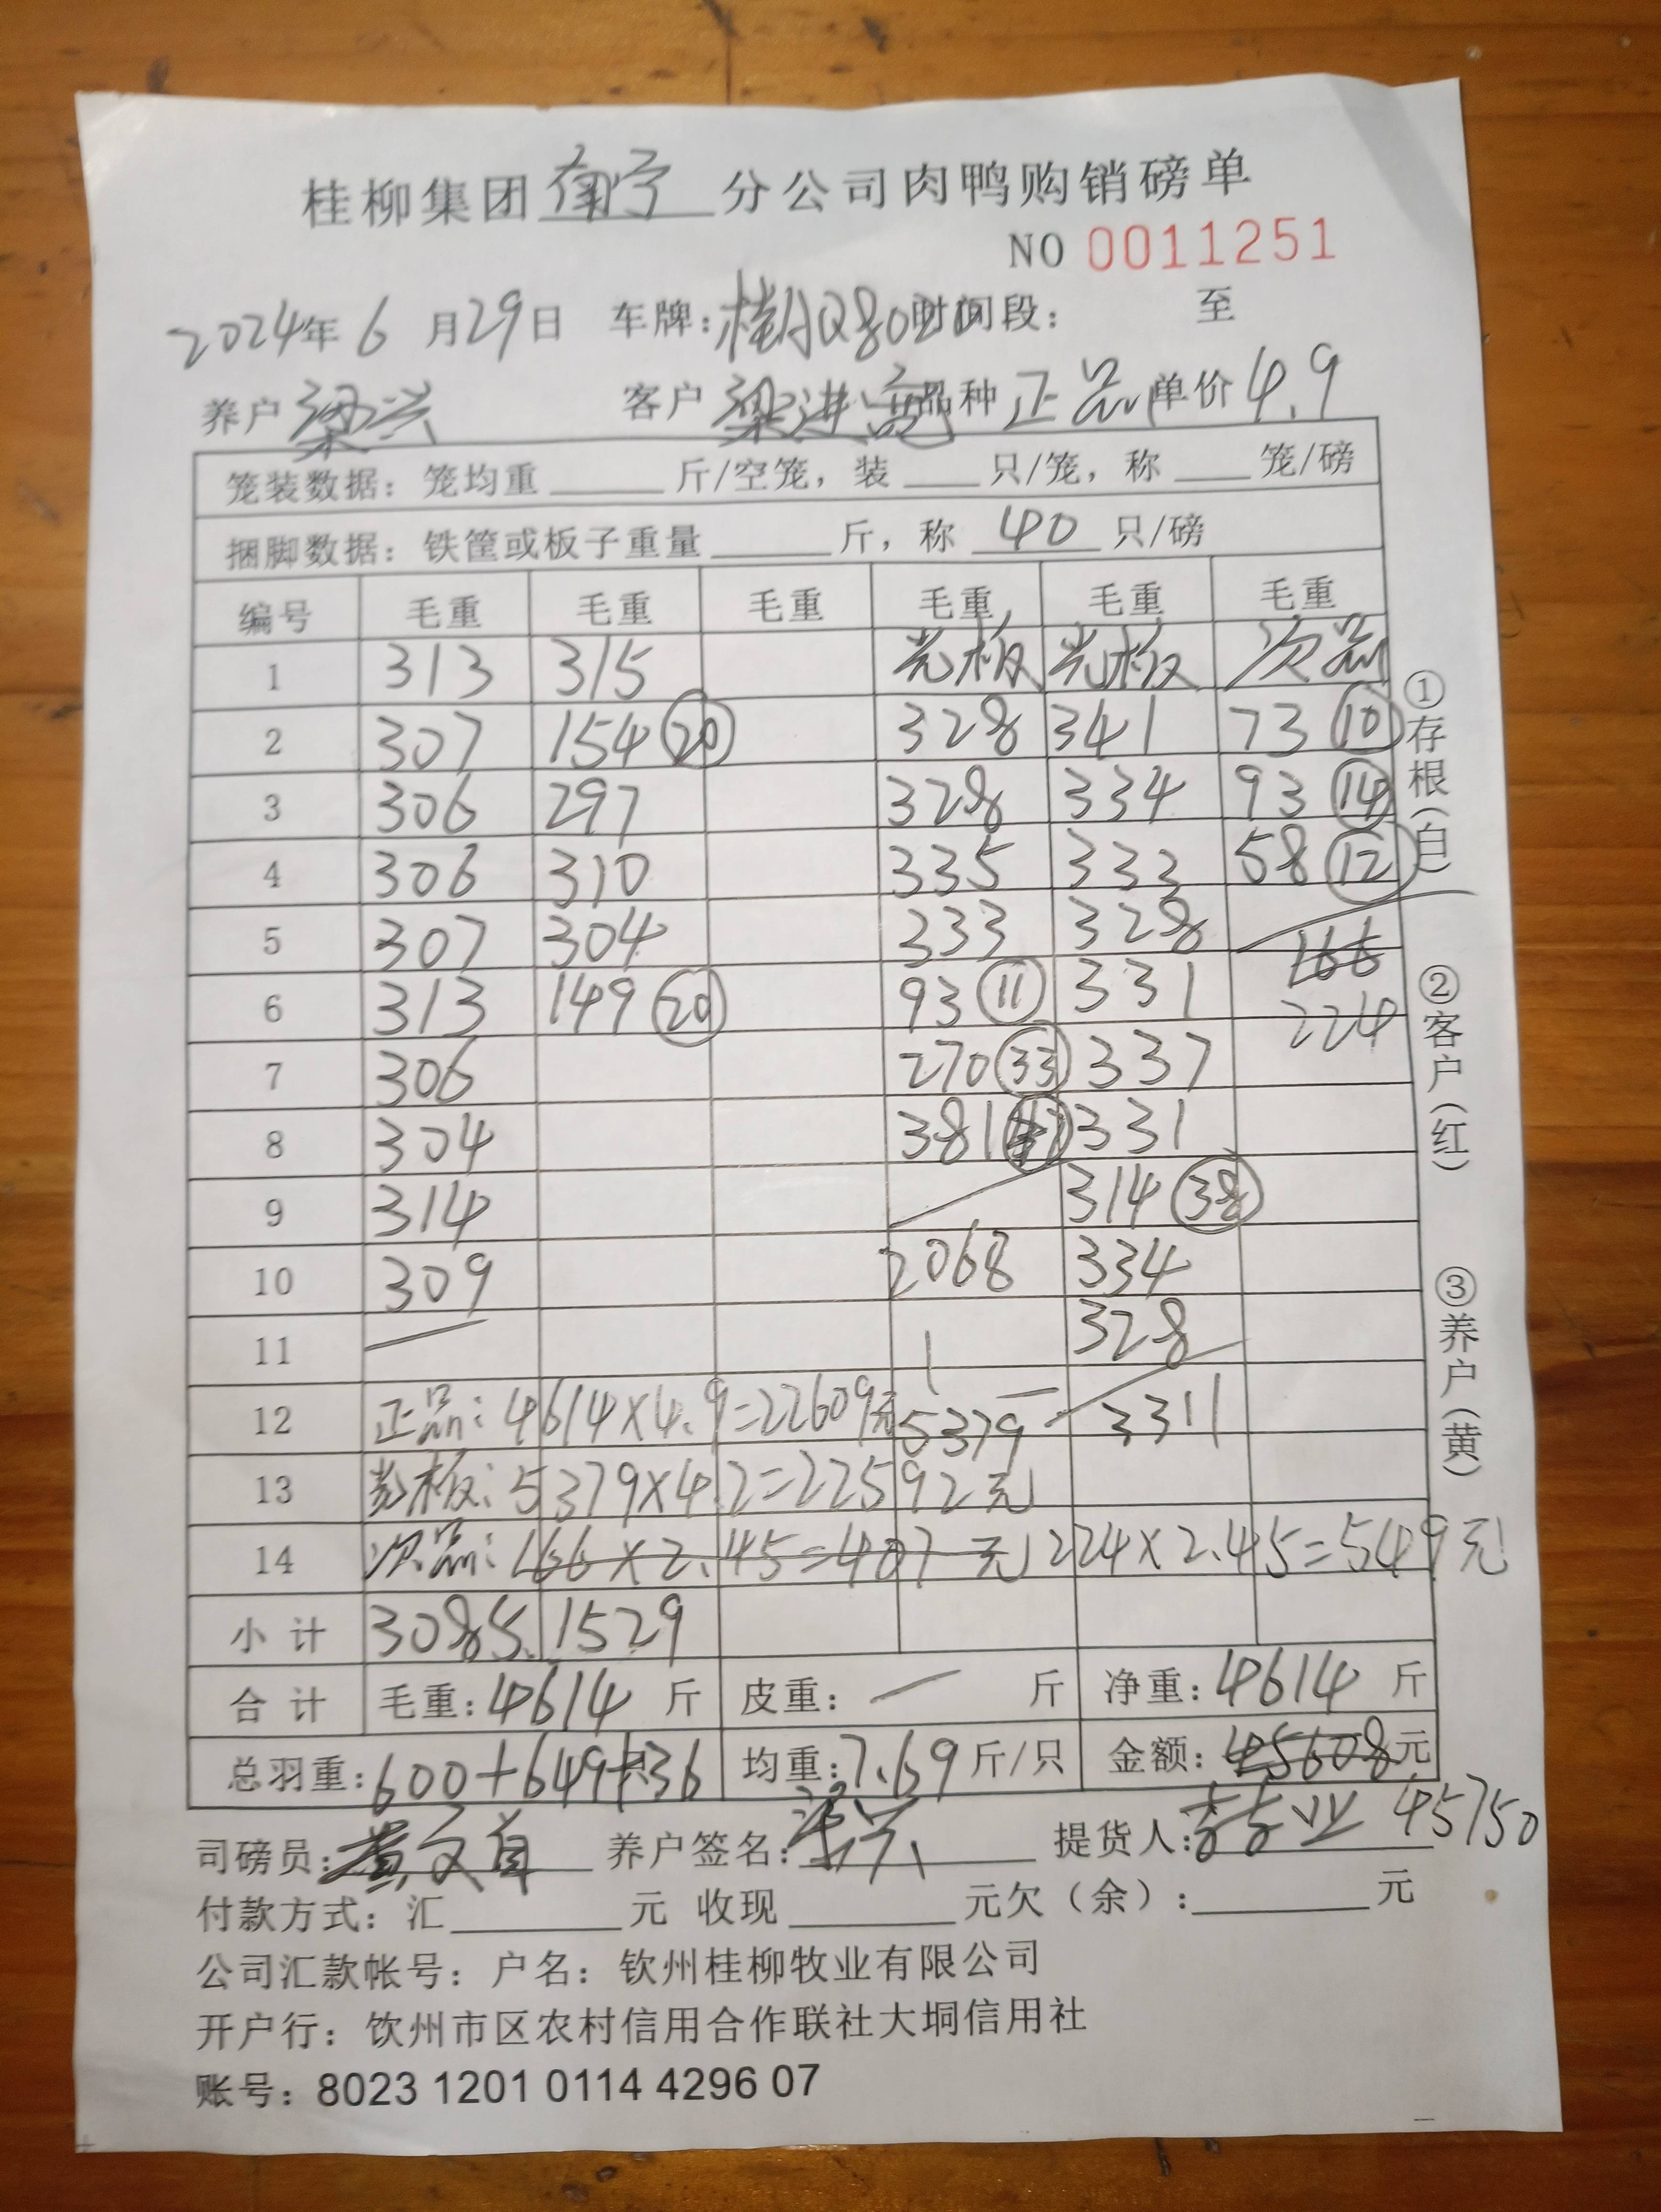 桂柳集团南宁分公司肉鸭购销磅单
NO 0011251
2024年6月29日 车牌: 时间段: 至
养户 梁兴 客户 品种 正品 单价 4.9
笼装数据: 笼均重 斤/空笼, 装 只/笼, 称 笼/磅
捆脚数据: 铁筐或板子重量 斤, 称 40 只/磅
编号 毛重 毛重 毛重 毛重 毛重 毛重
1 313 315 光板 光板 次品
2 307 154 20 328 341 73 10
3 306 297 328 334 93 14
4 306 310 335 333 58 12
5 307 304 333 328 166
6 313 149 20 93 11 331 224
7 306 270 33 337
8 304 381 331
9 314 314 38
10 309 2068 334
11 328
12 正品: 4614×4.9=22609元 5379 3311
13 光板: 5379×4.2=22592元
14 次品: 166×2.45=407元 224×2.45=549元
小计 3085 1529
合计 毛重: 4614 斤 皮重: 一 斤 净重: 4614 斤
总羽重: 600+649+36 均重: 7.69 斤/只 金额: 45608元
司磅员: 养户签名: 梁兴 提货人: 45750
付款方式: 汇 元 收现 元欠(余): 元
公司汇款帐号: 户名: 钦州桂柳牧业有限公司
开户行: 饮州市区农村信用合作联社大垌信用社
账号: 8023 1201 0114 4296 07
①存根(白)
②客户(红)
③养户(黄)